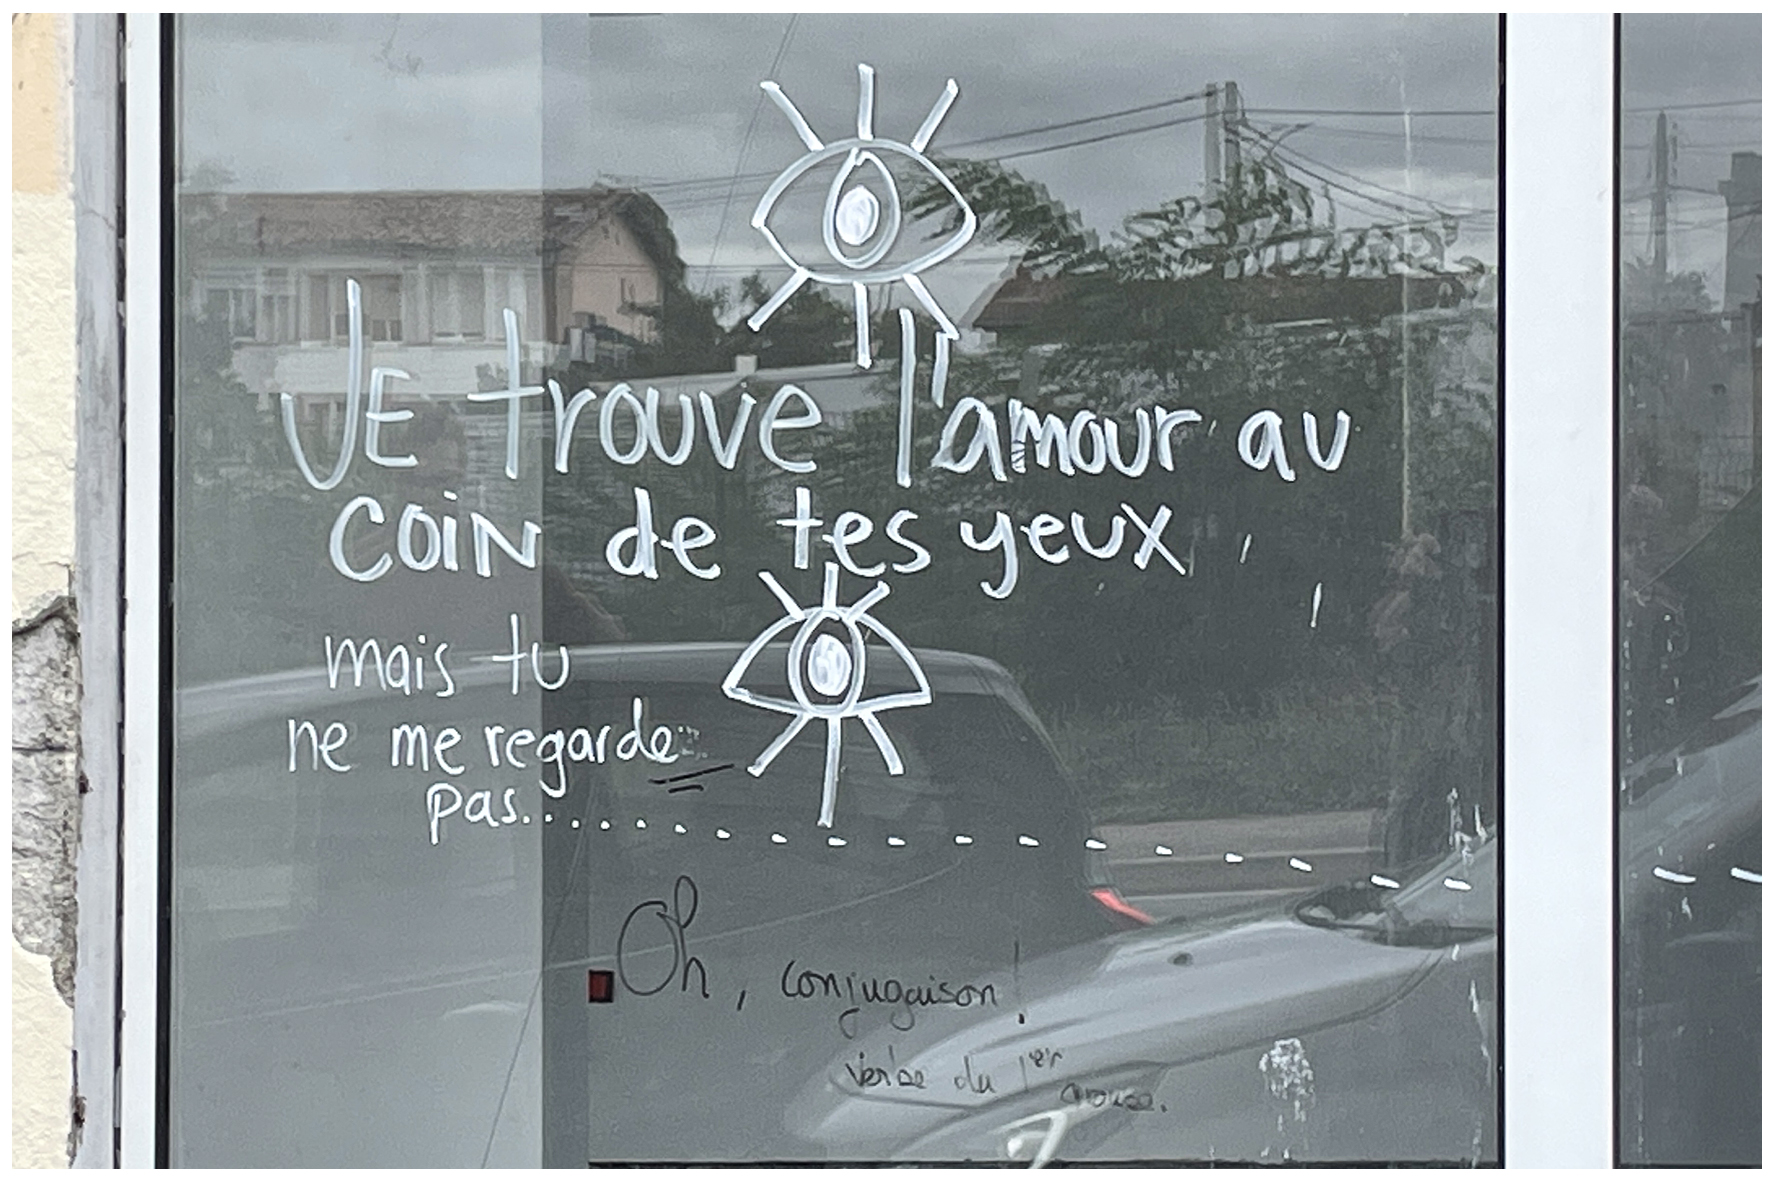 JE trouve l'amour au
coin de tes yeux,
mais tu
ne me regarde
pas...
Oh, conjugaison !
verbe du 1er
groupe.